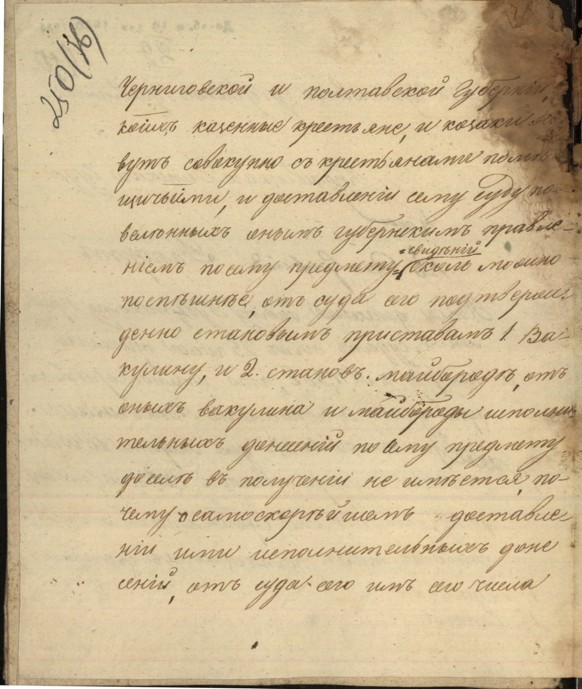 250 (76)
Черниговской и полтавской Губерній,
каzенные крестьяне, и козаки
вутъ совокупно съ крестьянами помѣ-
щичьими, и доставленіи сему Суду по-
велѣнныхъ онымъ губернскимъ правле-
ніемъ по сему предмету свидѣній скольможно
поспѣшнѣе, отъ суда сего подтверж-
денно становымъ приставамъ 1. Ва-
кулину, и 2. станов. майбородѣ, отъ
оныхъ вакулина и майбороды исполни-
тельныхъ донесеній по сему предмету
доселѣ въ полученіи не имѣется, по-
чему о самоскорѣйшемъ доставле-
ніи ими исполнительныхъ доне-
сеній, отъ суда сего имъ сего числа